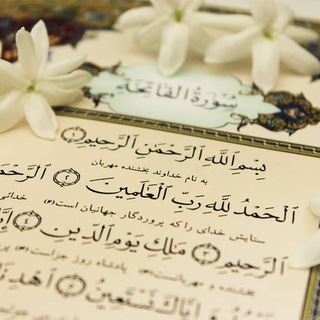 سُورَةُ الفَاتِحَة
بِسْمِ اللَّهِ الرَّحْمَنِ الرَّحِيمِ ﴿١﴾
به نام خداوند بخشنده مهربان
الْحَمْدُ لِلَّهِ رَبِّ الْعَالَمِينَ ﴿٢﴾ الرَّحْمَ
ستایش خدای را که پروردگار جهانیان است(٢) خدای
الرَّحِيمِ ﴿٣﴾ مَالِكِ يَوْمِ الدِّينِ ﴿٤﴾ إِيَّا
بخشنده و مهربانست(٣) پادشاه روز جزاست(٤)
إِيَّاكَ نَسْتَعِينُ ﴿٥﴾ اهْدِنَا